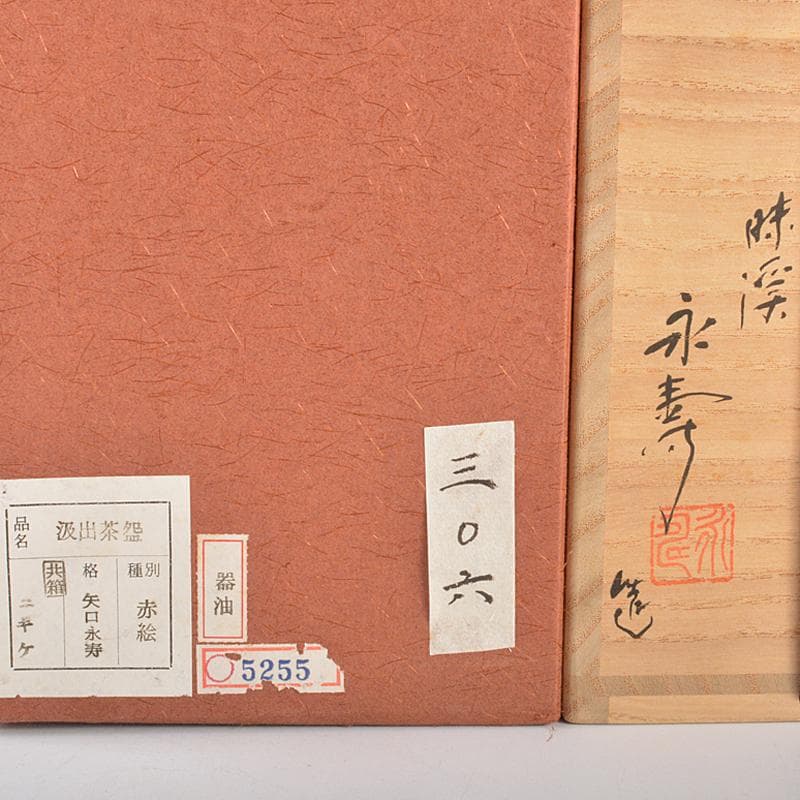 品名 汲出茶盌
種別 赤絵
格 矢口永寿
共箱
器油
5255
三〇六
永寿
造